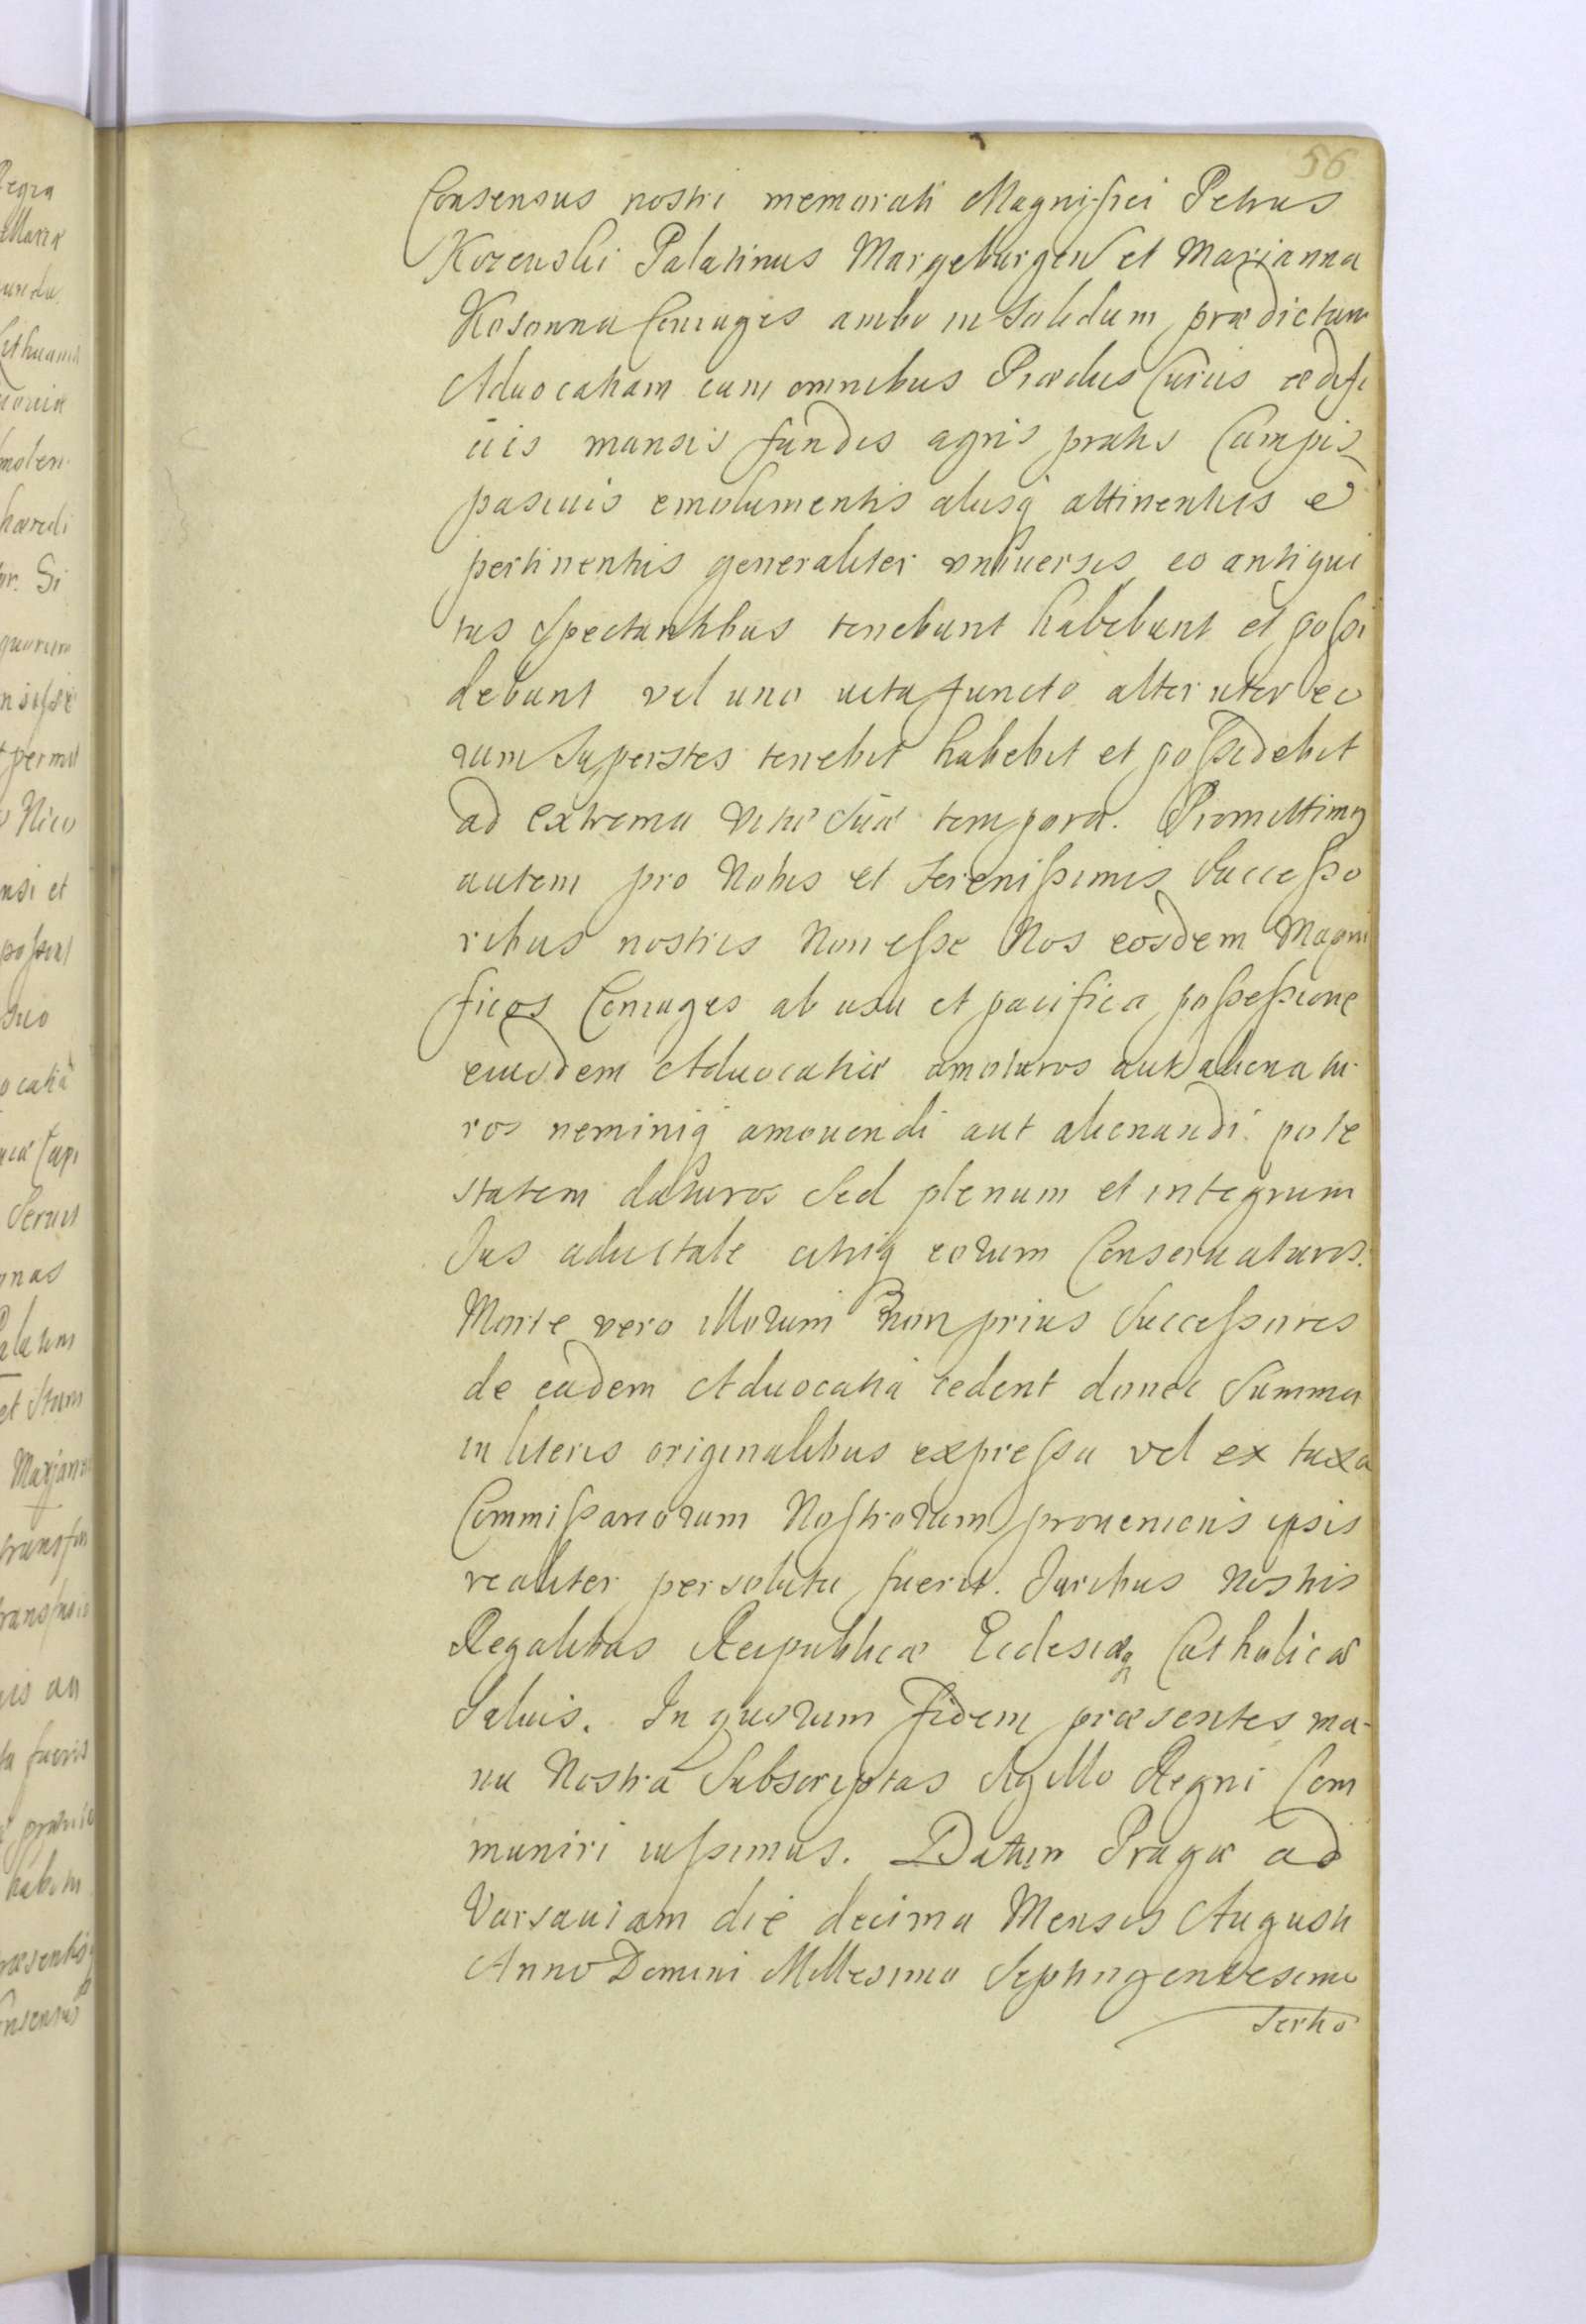 56
Consensus nostri memorati Magnifici Petrus
Kozenski Palatinus Margeburgen et Marianna
Kosonna Coniuges ambo in Solidum prædictam
Aduocatiam cum omnibus Prædiis Curiis ædifi
ciis mansis fundis agris pratis Campis
pascuis emolumentis aliisq attinentiis e
pertinentiis generaliter vniuersis eo antiqui
tus Spectantibus tenebunt habebunt et poſsi
debunt vel uno vita functo alter uter eo
rum Superstes tenebit habebit et poſsidebit
ad extrema vitæ Suæ tempora. Promittimq
autem pro Nobis et Sereniſsimis Succeſso
ribus nostris Non eſse Nos eosdem Magni
ficos Coniuges ab usu et pacifica poſseſsione
eiusdem Aduocatiæ amoturos aut aliena tu-
ros neminiq amouendi aut alienandi pote
statem daturos Sed plenum et integrum
Jus aduitale cuiq eorum Conseruaturos.
Morte vero illorum non prius Succeſsores
de eadem Aduocatiâ cedent donec Summa
in literis originalibus expreſsa vel ex taxa
Commiſsariorum Noſtrorum proueniens ipsis
realiter persoluta fuerit. Juribus Nostris
Regalibus Reipublicæ Ecclesiæq Catholicæ
Saluis. In quorum fidem præsentes ma-
nu Nostrâ Subscriptas Sigillo Regni Com
muniri iuſsimus. Datum Pragæ ad
Varsauiam die decima Mensis Augusti
Anno Domini Millesimo Septingentesimo
Tertio